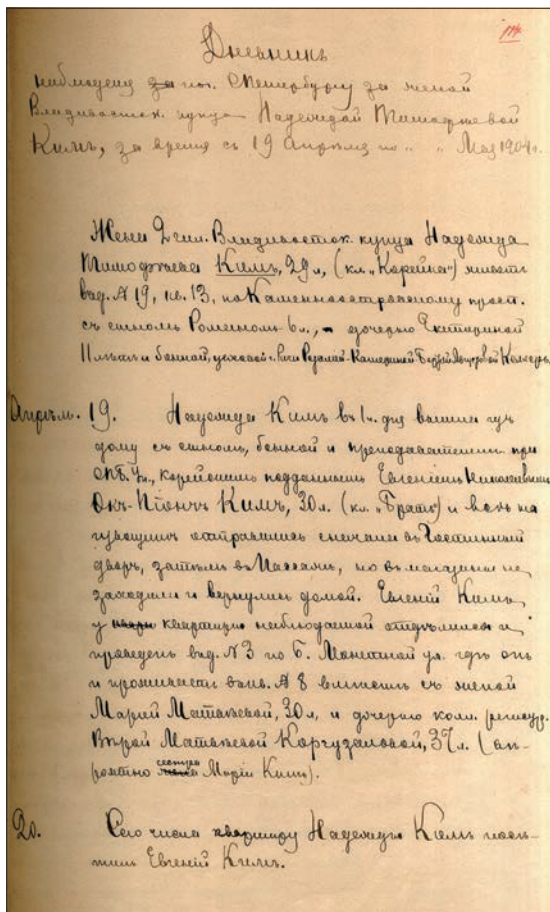 Дневникъ
наблюденія ~~за~~ по г. СПетербургу за женой
Владивосток. купца Надеждой Тимофѣевой
Кимъ, за время съ 19 Апрѣля по " " Мая 1904 г.
Жена 2 гил. Владивосток. купца Надежда
Тимофѣева Кимъ, 29 л, (кл. „Корейка") живетъ
въ д. № 19, кв. 13, по Каменноостровскому просп.
съ сыномъ Романомъ 6 л., - дочерью Екатериной
и бонной,
Апрѣль. 19. Надежда Кимъ въ 1 ч. дня вышла изъ
дому съ сыномъ, бонной и преподавателемъ при
СПБ. Ун., корейскимъ подданнымъ Евгеніемъ Николаевымъ
Кимъ, 30 л. (кл. „Братъ") и всѣ на
извощикѣ отправились сначала въ Гостинный
дворъ, затѣмъ въ Пассажъ, но въ магазины не
заходили и вернулись домой. Евгеній Кимъ
у квартиры наблюдаемой отдѣлился и
проведенъ въ д. № 3 по Б. Монетной ул. гдѣ онъ
и проживаетъ въ кв. № 8 вмѣстѣ съ женой
Маріей Матвѣевой, 30 л, и дочерью колл. регистр.
Вѣрой Матвѣевой 37 л. (вѣ-
роятно сестра Маріи Кимъ).
20. Сего числа квартиру Надежды Кимъ посѣ-
тилъ Евгеній Кимъ.